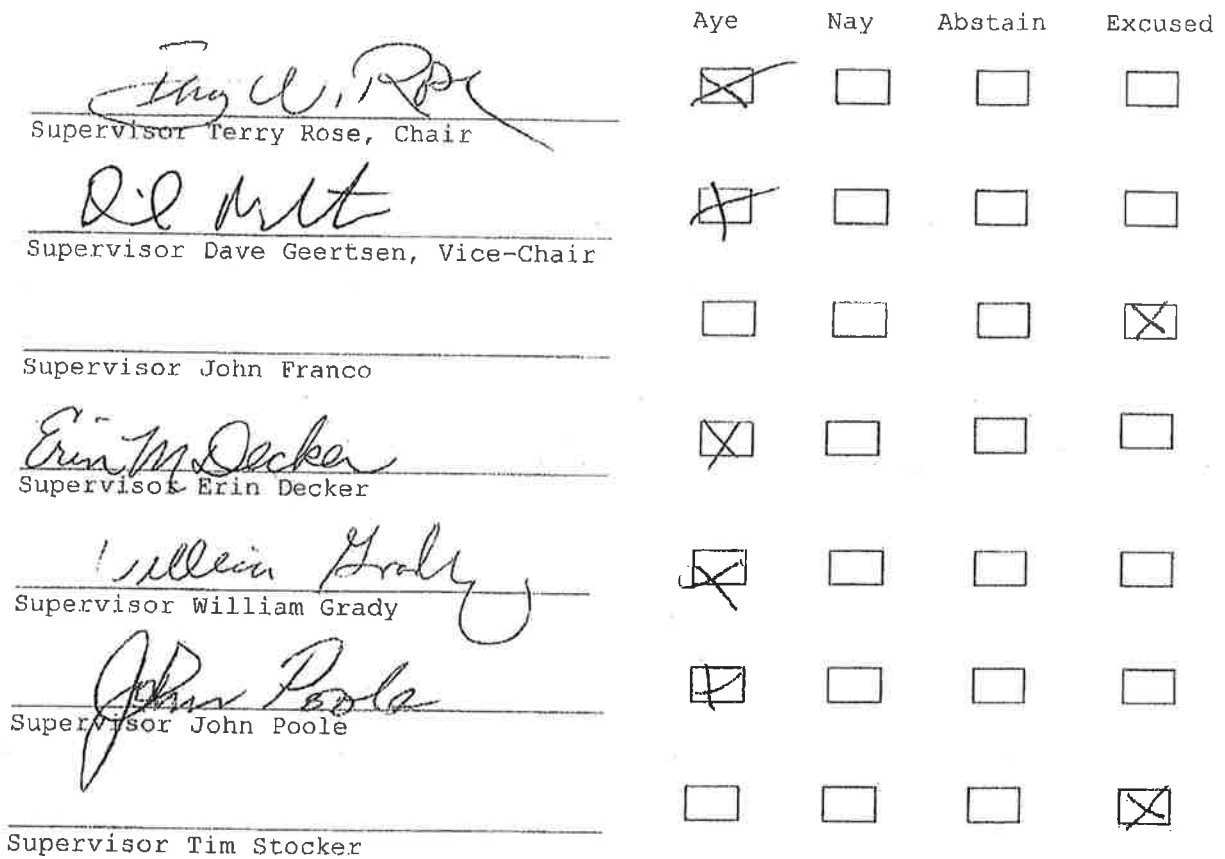 Aye Nay Abstain Excused
Supervisor Terry Rose, Chair
Supervisor Dave Geertsen, Vice-Chair
Supervisor John Franco
Erin M Decker
Supervisor Erin Decker
William Grady
Supervisor William Grady
John Poole
Supervisor John Poole
Supervisor Tim Stocker